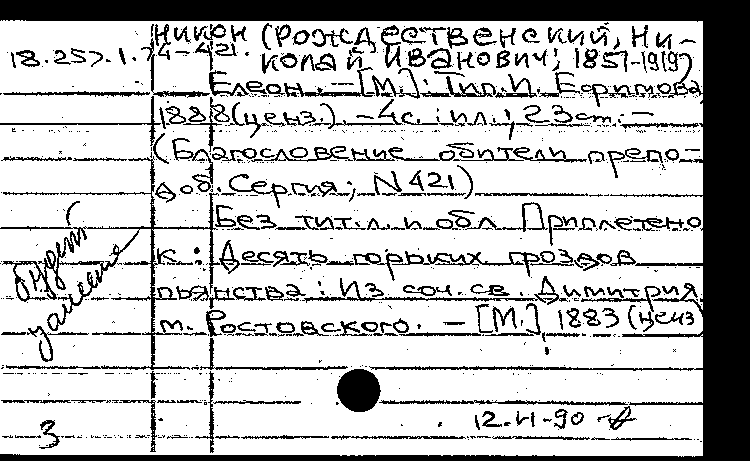 Никон (Рождественский, Ни-
18.257.1.74-421. колай Иванович; 1851-1919)
Елеон. - [М.]: Тип. И. Ефимова,
1888 (ценз.). - 4с.: ил.; 23 см. -
(Благословение обители препо-
доб. Сергия; N 421)
Без тит.л. и обл. Приплетено
к: Десять горьких гроздов
пьянства: Из соч. св. Димитрия,
м. Ростовского. - [М.], 1883 (ценз)
будет
12.VI-90
3